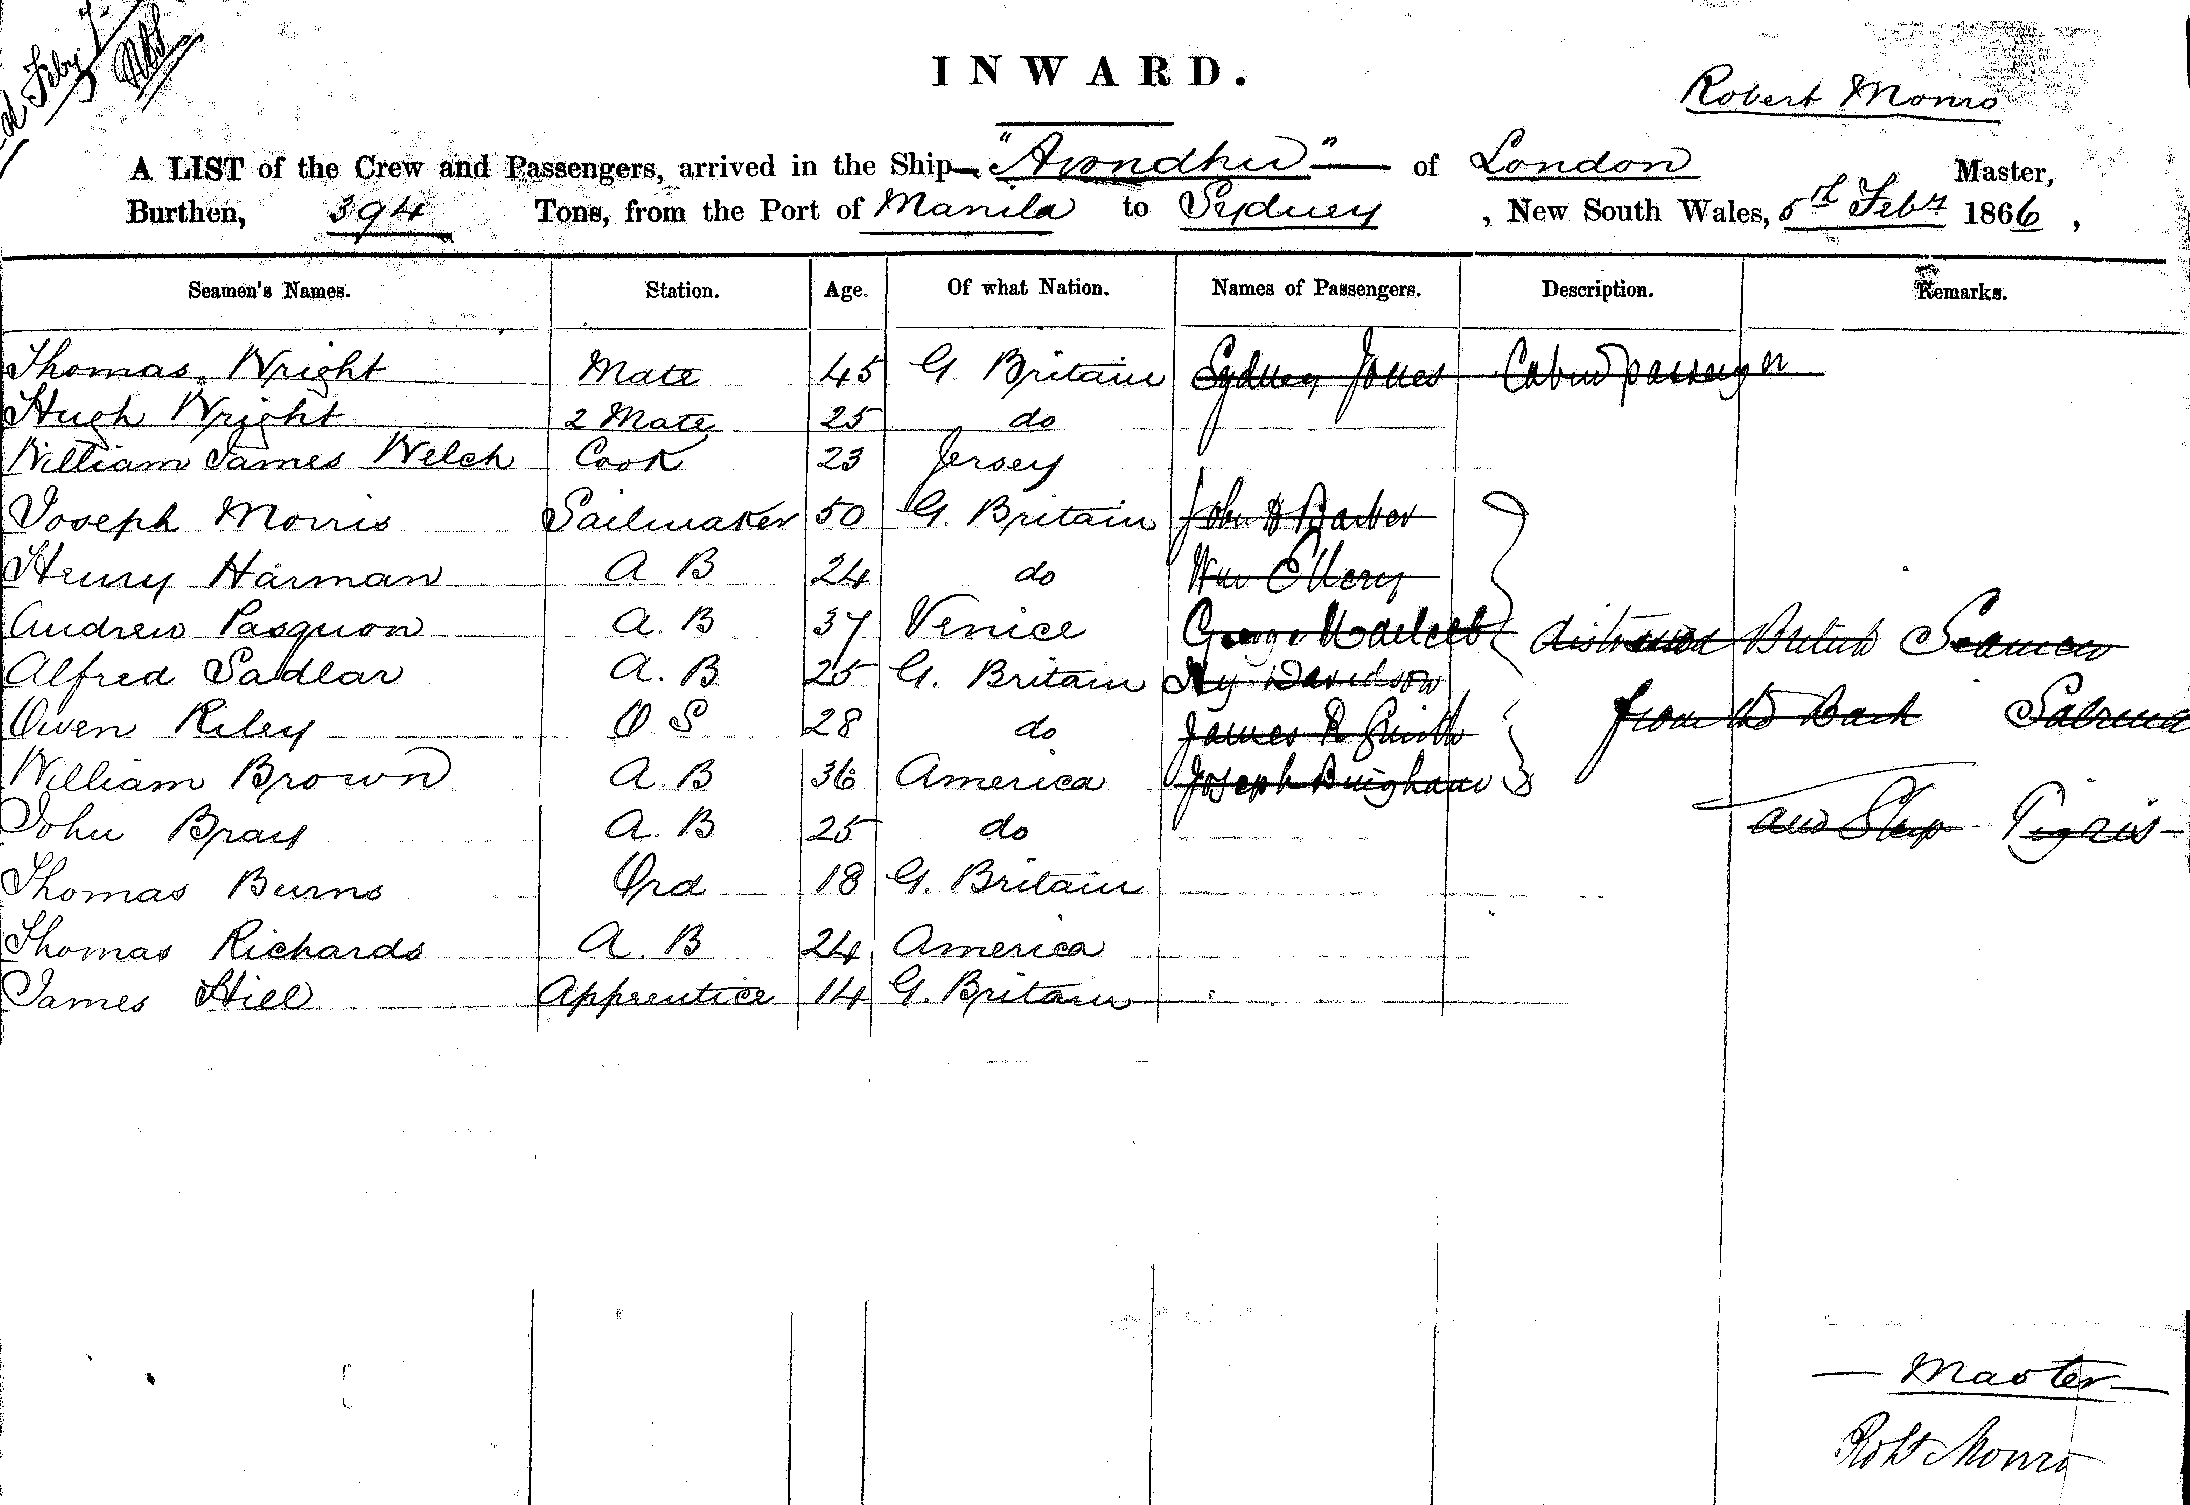 Feby
INWARD.
Robert Monro
A LIST of the Crew and Passengers, arrived in the Ship "Avondhu" of London Master,
Burthen, 394 Tons, from the Port of Manila to Sydney, New South Wales, 5th Feby 1866,
Seamen's Names. Station. Age. Of what Nation. Names of Passengers. Description. Remarks.
Thomas Wright Mate 45 G Britain Sydney Jones Cabin passenger
Hugh Wright 2 Mate 25 do
William James Welch Cook 23 Jersey
Joseph Morris Sailmaker 50 G. Britain John Barber
Henry Harman A B 24 do Wm Ellery
Andrew Pasquon A. B 37 Venice George distressed British Seamen
Alfred Sadlar A. B 25 G. Britain Hy Davidson
Owen Riley O S 28 do James R Smith from the Bark Sabrina
William Brown A. B 36 America Joseph Bingham
John Bray A. B 25 do and Ship Tigris
Thomas Burns Ord 18 G. Britain
Thomas Richards A. B 24 America
James Hill Apprentice 14 G. Britain
Master
Robt Monro